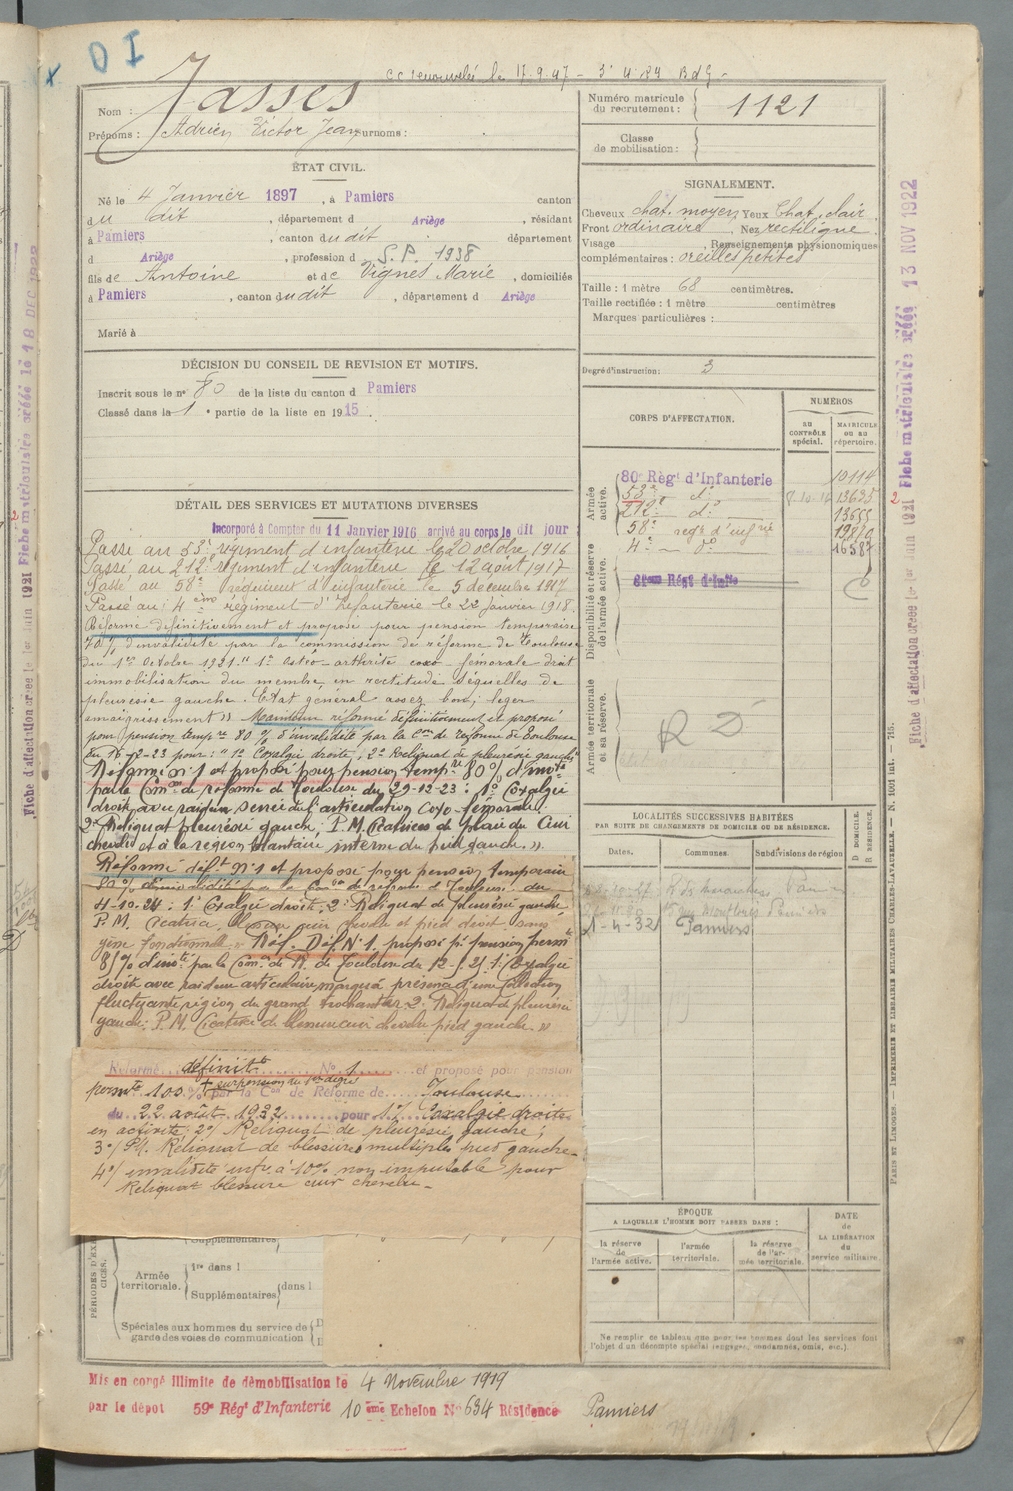 D I
cc renouvelée le 17.9.47 -
Nom : Jasses
Prénoms : Adrien Victor Jean Surnoms :
Numéro matricule du recrutement : 1121
Classe de mobilisation :
ÉTAT CIVIL.
Né le 4 Janvier 1897, à Pamiers canton
du dit, département d Ariège, résidant
à Pamiers, canton dudit département
d Ariège, profession d S.P. 1938
fils de Antoine et de Vignes Marie, domiciliés
à Pamiers, canton dudit, département d Ariège
Marié à
SIGNALEMENT.
Cheveux chat. moyen Yeux Chat. clair
Front ordinaire Nez rectiligne
Visage Renseignements physionomiques
complémentaires : oreilles petites
Taille : 1 mètre 68 centimètres.
Taille rectifiée : 1 mètre centimètres
Marques particulières :
Degré d'instruction : 3
DÉCISION DU CONSEIL DE REVISION ET MOTIFS.
Inscrit sous le n° 80 de la liste du canton d Pamiers
Classé dans la 1e partie de la liste en 1915.
DÉTAIL DES SERVICES ET MUTATIONS DIVERSES
Incorporé à Compter du 11 Janvier 1916 arrivé au corps le dit jour
Passé au 53e régiment d'infanterie le 20 octobre 1916
Passé au 212e régiment d'infanterie le 12 août 1917
Passé au 58e régiment d'infanterie le 5 décembre 1917
Passé au 4ème régiment d'Infanterie le 22 Janvier 1918.
Réformé définitivement et proposé pour pension temporaire
70% d'invalidité par la commission de réforme de Toulouse
du 1er Octobre 1921 "1° Ostéo-arthrite coxo femorale droit
immobilisation du membre en rectitude séquelles de
pleuresie gauche. Etat général assez bon, leger
amaigrissement » Maintenu réformé définitivement et proposé
pour pension tempre 80% d'invalidité par la Con de réforme de Toulouse
pour : "1° Coxalgie droite, 2° Reliquat de pleurésie gauche"
Réformé n° 1 et proposé pour pension tempre 80% d'invté
par la Comon de réforme de Toulouse du 29-12-23 : 1° Coxalgie
droite avec raideur serrée de l'articulation coxo-fémorale.
2° Reliquat pleurésie gauche, P.M. Cicatrices de plaie du Cuir
chevelu et à la région plantaire interne du pied gauche. »
Réformé déft N°1 et proposé pour pension temporaire
80% d'invalidité par la Con de réforme de Toulouse du
4-10-24 : 1° Coxalgie droite, 2° Reliquat de pleurésie gauche
P.M. cuir chevelu et pied droit sans
gêne fonctionnelle » Réf. Déf. N°1. proposé pr pension permte
85% d'invté par la Comon de R. de Toulouse du 1° Coxalgie
droite avec raideur articulaire marquée présence d'une collection
fluctuante région du grand trochanter 2° Reliquat de pleurésie
gauche. P.M. Cicatrice de blessure cuir chevelu pied gauche. »
Réformé définitt N° 1 et proposé pour pension
permte 100% + surpension du 1er degré par la Con de Réforme de Toulouse
du 22 août 1932 pour 1°/ Coxalgie droite
en activité 2°/ Reliquat de pleurésie gauche ;
3°/ P.M. Reliquat de blessures multiples pied gauche
4°/ invalidité infre à 10% non imputable pour
Reliquat blessure cuir chevelu -
CORPS D'AFFECTATION.
NUMÉROS
AU CONTRÔLE spécial.
MATRICULE OU AU répertoire.
Armée active.
80e Régt d'Infanterie 10114
53e d° 13635
212e d° 13655
58e regt d'infrie 19810
4e d° 16587
Disponibilité et réserve de l'armée active.
Armée territoriale et sa réserve.
R D
LOCALITÉS SUCCESSIVES HABITÉES
PAR SUITE DE CHANGEMENTS DE DOMICILE OU DE RÉSIDENCE.
Dates. Communes. Subdivisions de région D DOMICILE. R RÉSIDENCE.
1-4-32 Pamiers
ÉPOQUE
A LAQUELLE L'HOMME DOIT PASSER DANS :
la réserve de l'armée active.
l'armée territoriale.
la réserve de l'armée territoriale.
DATE de LA LIBÉRATION du service militaire.
Ne remplir ce tableau que pour les hommes dont les services font
l'objet d'un décompte spécial (engagés, condamnés, omis, etc.).
PÉRIODES D'EXERCICES.
Supplémentaires
Armée territoriale. 1re dans l
Supplémentaires dans l
Spéciales aux hommes du service de
garde des voies de communication
Mis en congé illimité de démobilisation le 4 Novembre 1919
par le dépôt 59e Régt d'Infanterie 10ème Echelon N° 634 Résidence Pamiers
Fiche d'affectation créée le 1er Juin 1921 Fiche matriculaire créée le 18 DEC 1922
Fiche d'affectation créée le 1er Juin 1921 Fiche matriculaire créée 13 NOV 1922
PARIS ET LIMOGES. — IMPRIMERIE ET LIBRAIRIE MILITAIRES CHARLES-LAVAUZELLE. — N. 1001 int. — 7-15.